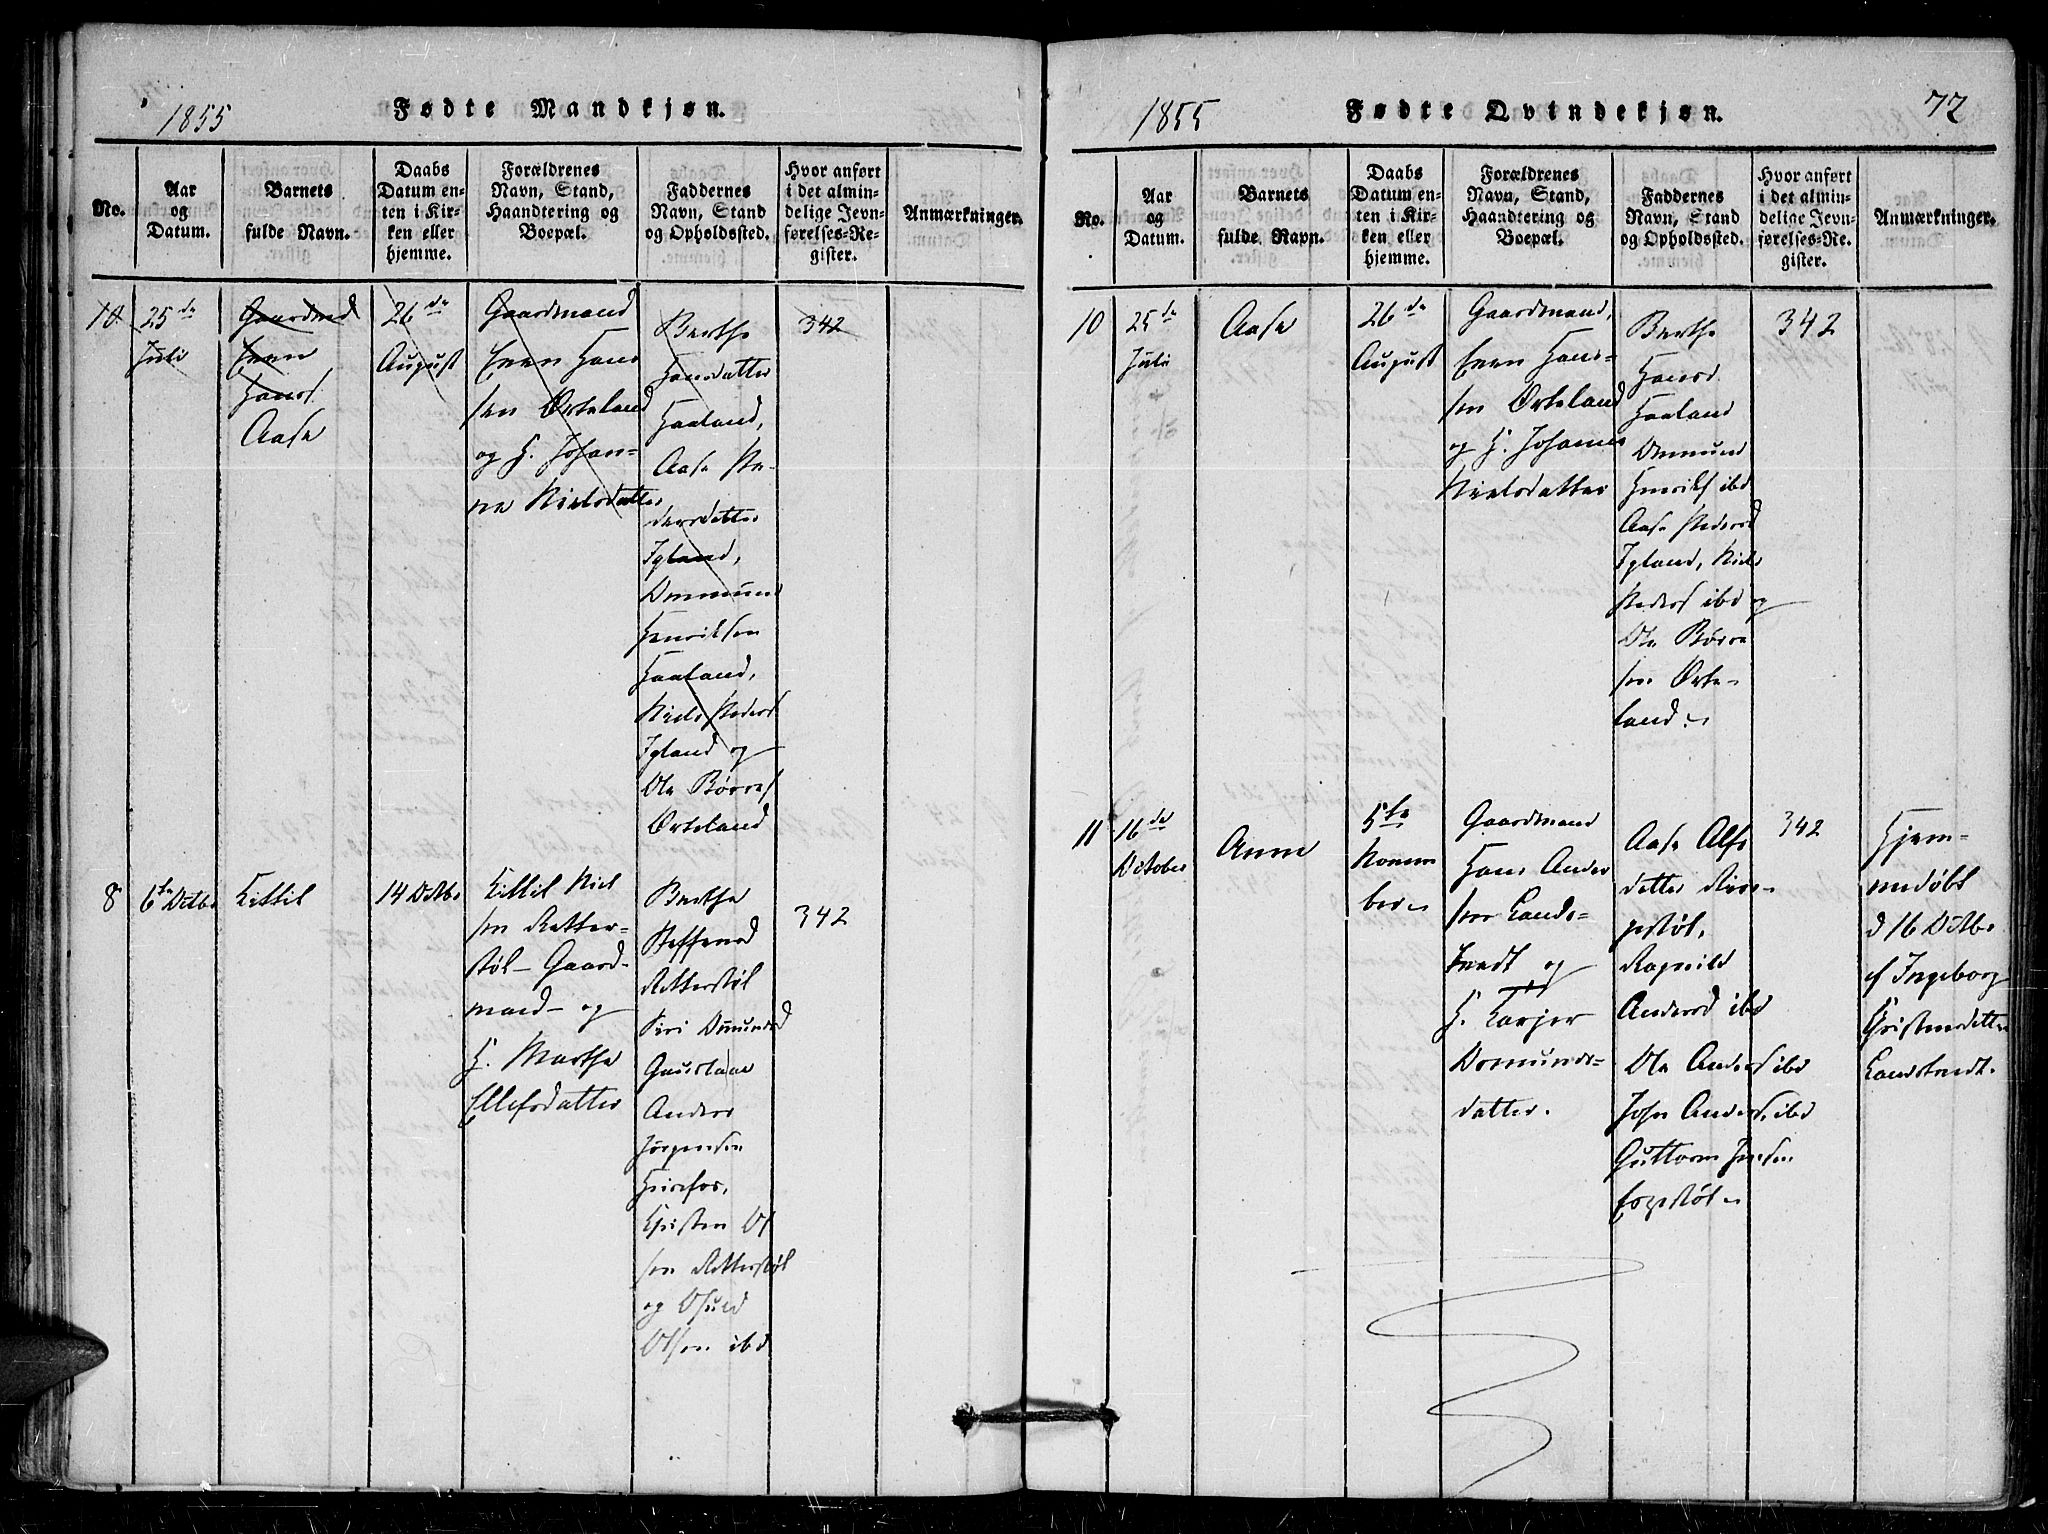 1855
Fødte Mandkjøn.
No.
Aar
og
Datum.
Barnets
fulde Navn.
Daabs
Datum en-
ten i Kir-
ken eller
hjemme.
Forældrenes
Navn, Stand,
Haandtering og
Boepæl.
Faddernes
Navn, Stand
og Opholdssted.
Hvor anført
i det almin-
delige Jevn-
førelses-Re-
gister.
Anmærkninger.
10
25de
Juli
Gaardmd
Even
Hans
Aase
26de
August
Gaardmand
Even Hans
sen Örteland
og H. Johan-
ne Nielsdatter
Berthe
Hansdatter
Haaland,
Aase Pe-
dersdatter
Igland,
Ommund
Henriksen
Haaland,
Niels Peders
Igland og
Ole Børres
Örteland
342
8
6te Octbr
Kittil
14 Octbr
Kittil Niel
sen Retter-
støl - Gaard-
mand - og
H. Marthe
Ellefsdatter
Berthe
Steffensd
Retterstøl
Siri Omundsd
Anders
Jørgensen
Christen Ol
sen Retterstøl
og Osuld
Olsen ibd
342
1855
Fødte Qvindekjøn.
77
No.
Aar
og
Datum.
Barnets
fulde Navn.
Daabs
Datum en-
ten i Kir-
ken eller
hjemme.
Forældrenes
Navn, Stand,
Haandtering og
Boepæl.
Faddernes
Navn, Stand
og Opholdssted.
Hvor anført
i det almin-
delige Jevn-
førelses-Re-
gister.
Anmærkninger.
10
25de
Juli
Aase
26de
August
Gaardmand,
Even Han-
sen Örteland
og H. Johanne
Nielsdatter
Berthe
Hansd
Haaland
Ommund
Henriks ibd
Aase Pedersd
Igland, Niels
Peders ibd og
Ole Børre
sen Örte-
land.
342
11
16de
October
Anne
5te
Novem
ber
Gaardmand
Hans Ander
sen Lands-
tvedt og
H. Tarjer
Omunds-
datter.
Aase Alfs
datter
Ragnild
Andersd ibd
Ole Anders ibd
John Anders. ibd
Guttorm Jensen
342
Hjem-
medøbt
d 16 Octbr
af Ingeborg
Christensdatter
Landstvedt.